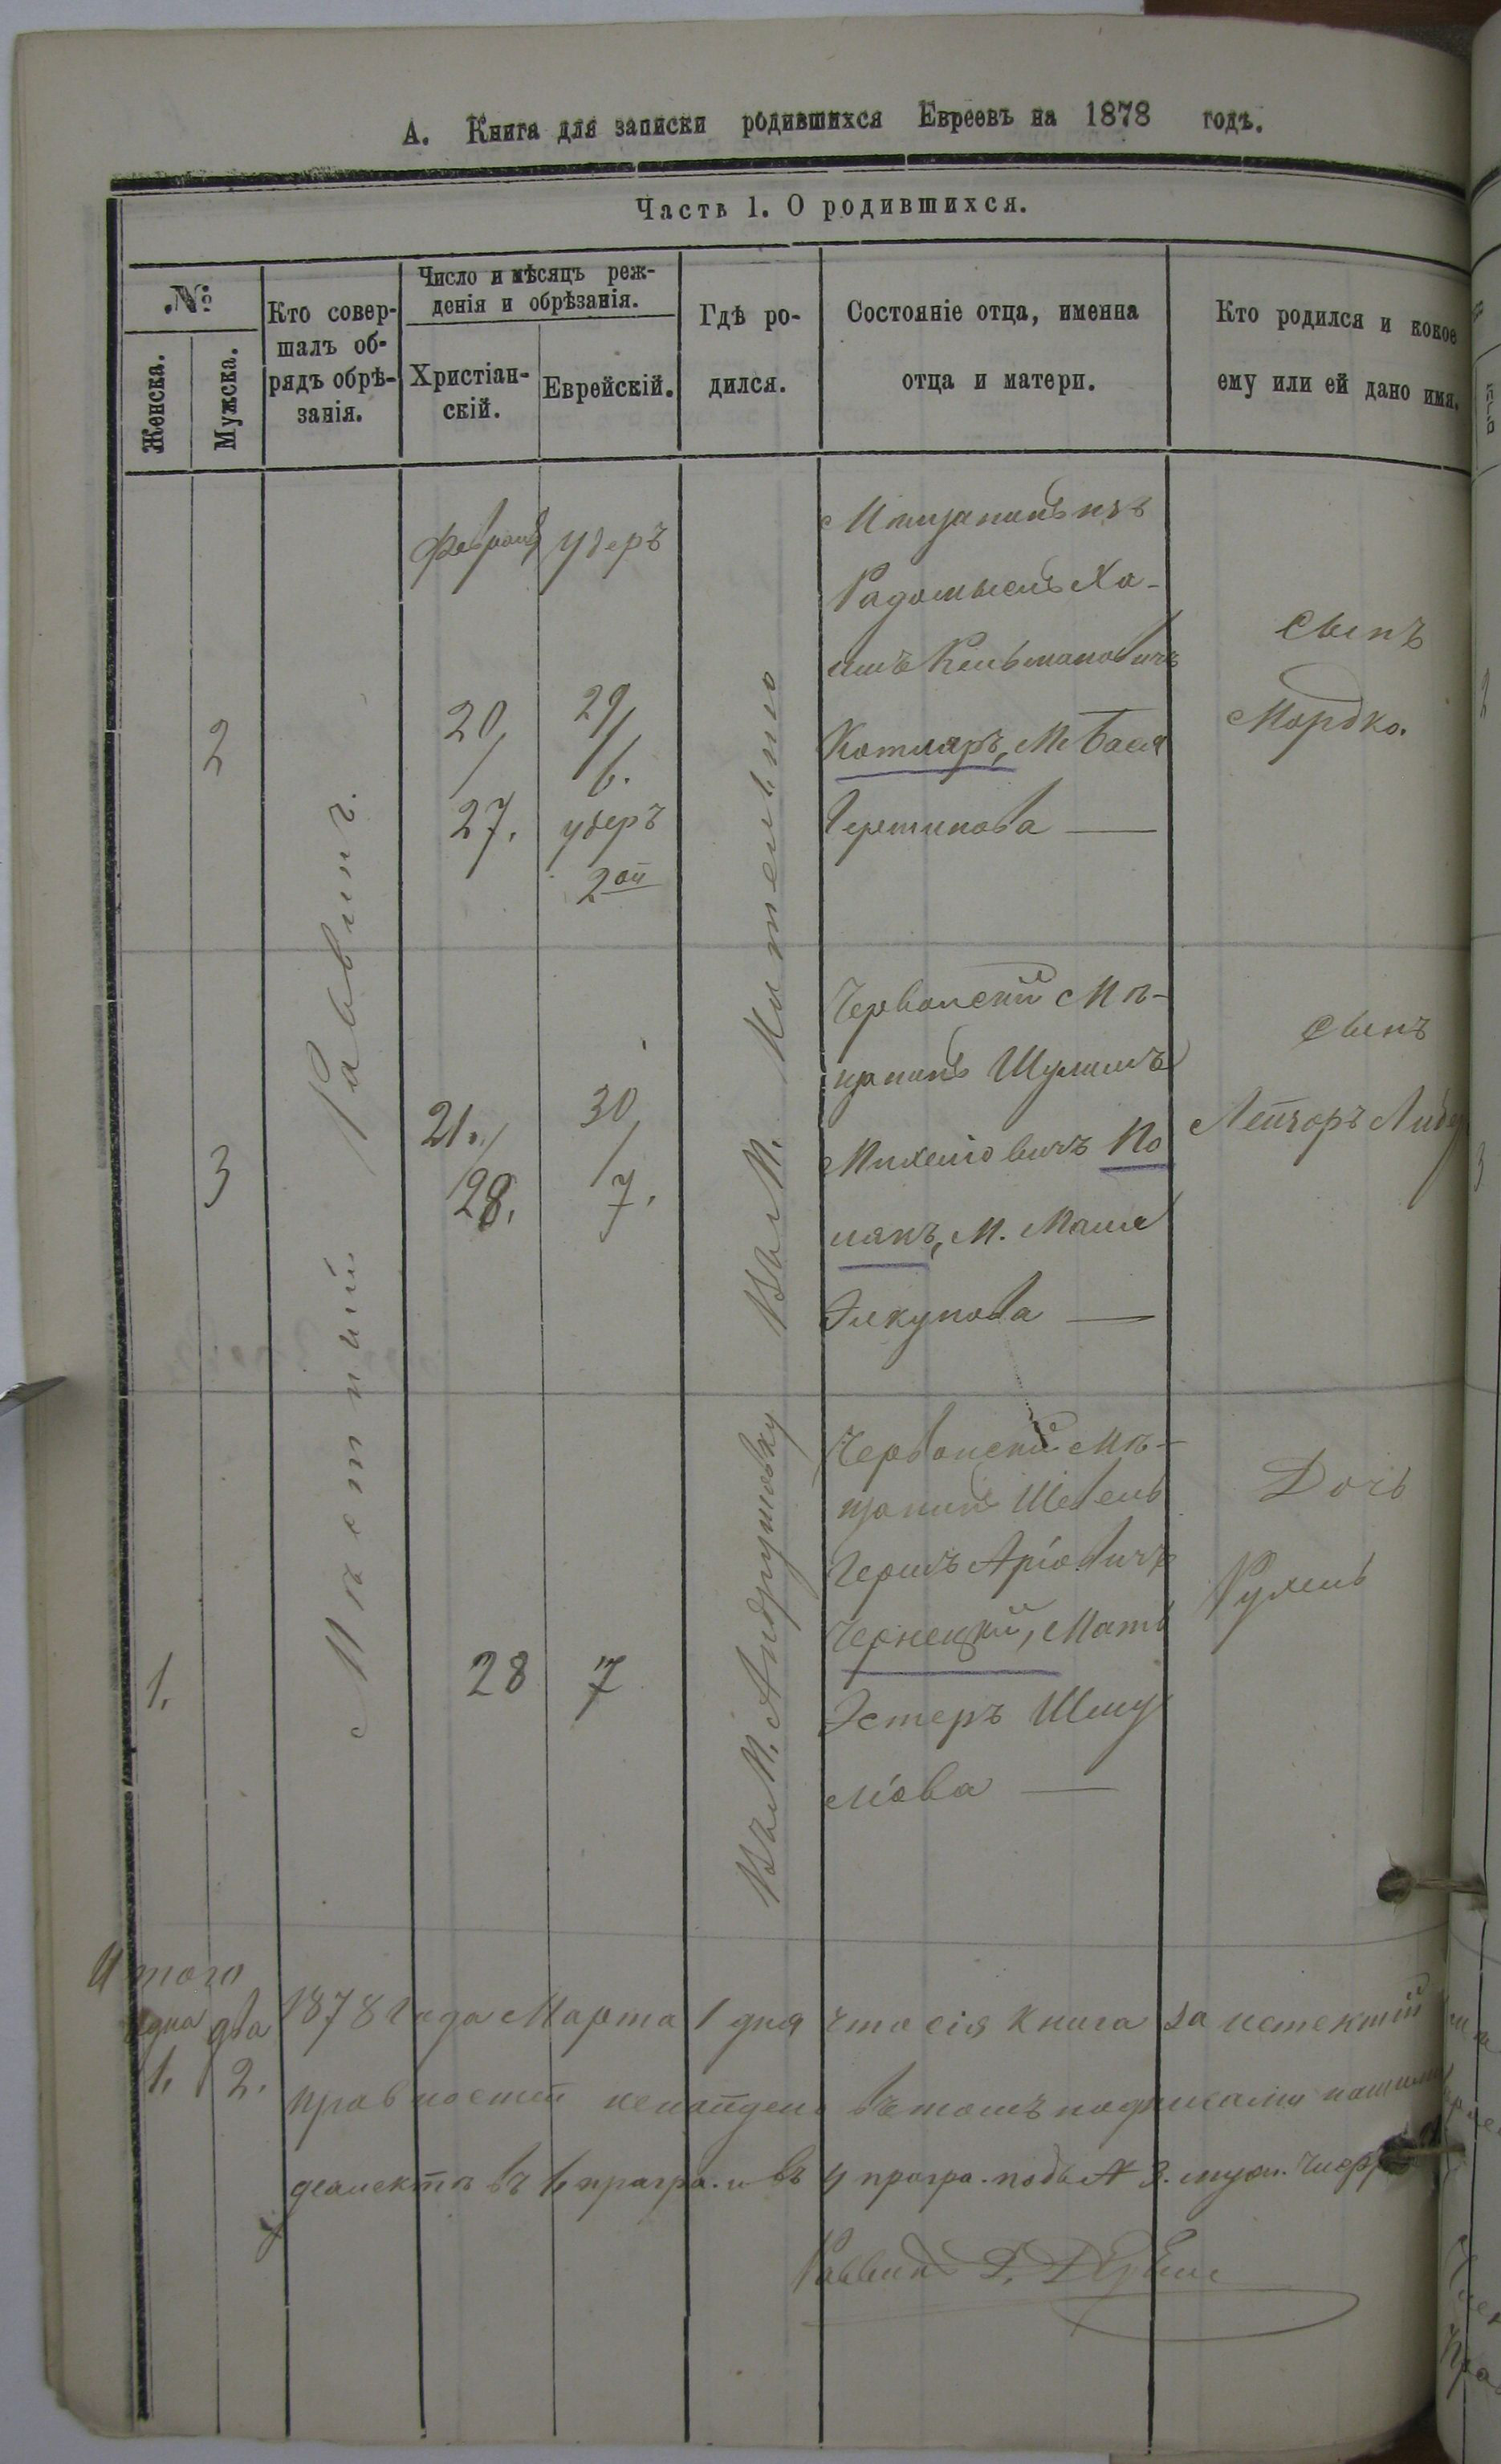 А. Книга для записки родившихся Евреевъ на 1878 годъ.
Часть 1. О родившихся.
№
Женска.
Мужска.
Кто совер-
шалъ об-
рядъ обрѣ-
занія.
Число и мѣсяцъ реж-
денія и обрѣзанія.
Христіан-
скій.
Еврейскій.
Гдѣ ро-
дился.
Состояніе отца, именна
отца и матери.
Кто родился и кокое
ему или ей дано имя.
Мѣстный Раввинъ.
2
Февраля
20
27.
Удеръ
29
6.
удеръ
2ой
Въ М.
Мищанинъ изъ
Радомысль Ха-
имъ Кельмановичъ
Котляръ, М Бася
Гершкова —
Сынъ
Мордко.
3
21.
28.
30
7.
Червонскій Мѣ-
щанинъ Шулимъ
Михеліовичъ По
лякъ, М. Маша
Элкунова —
Сынъ
Лейзоръ Либер
1.
28
7
Въ М. Андрушовку
Червонскій Мѣ-
щанинъ Шевель
Гершъ Аріовичъ
Чернецкій, Мать
Эстеръ Шму
ліова —
Дочь
Рухль
Итого
одна два
1. 2.
1878 Года Марта 1 дня что сія книга за истекшій
правностей ненайдено въ томъ подписами нашими
въ 1 прагра. и въ 4 прагра. подъ № 3. муж.
Раввинъ Д.